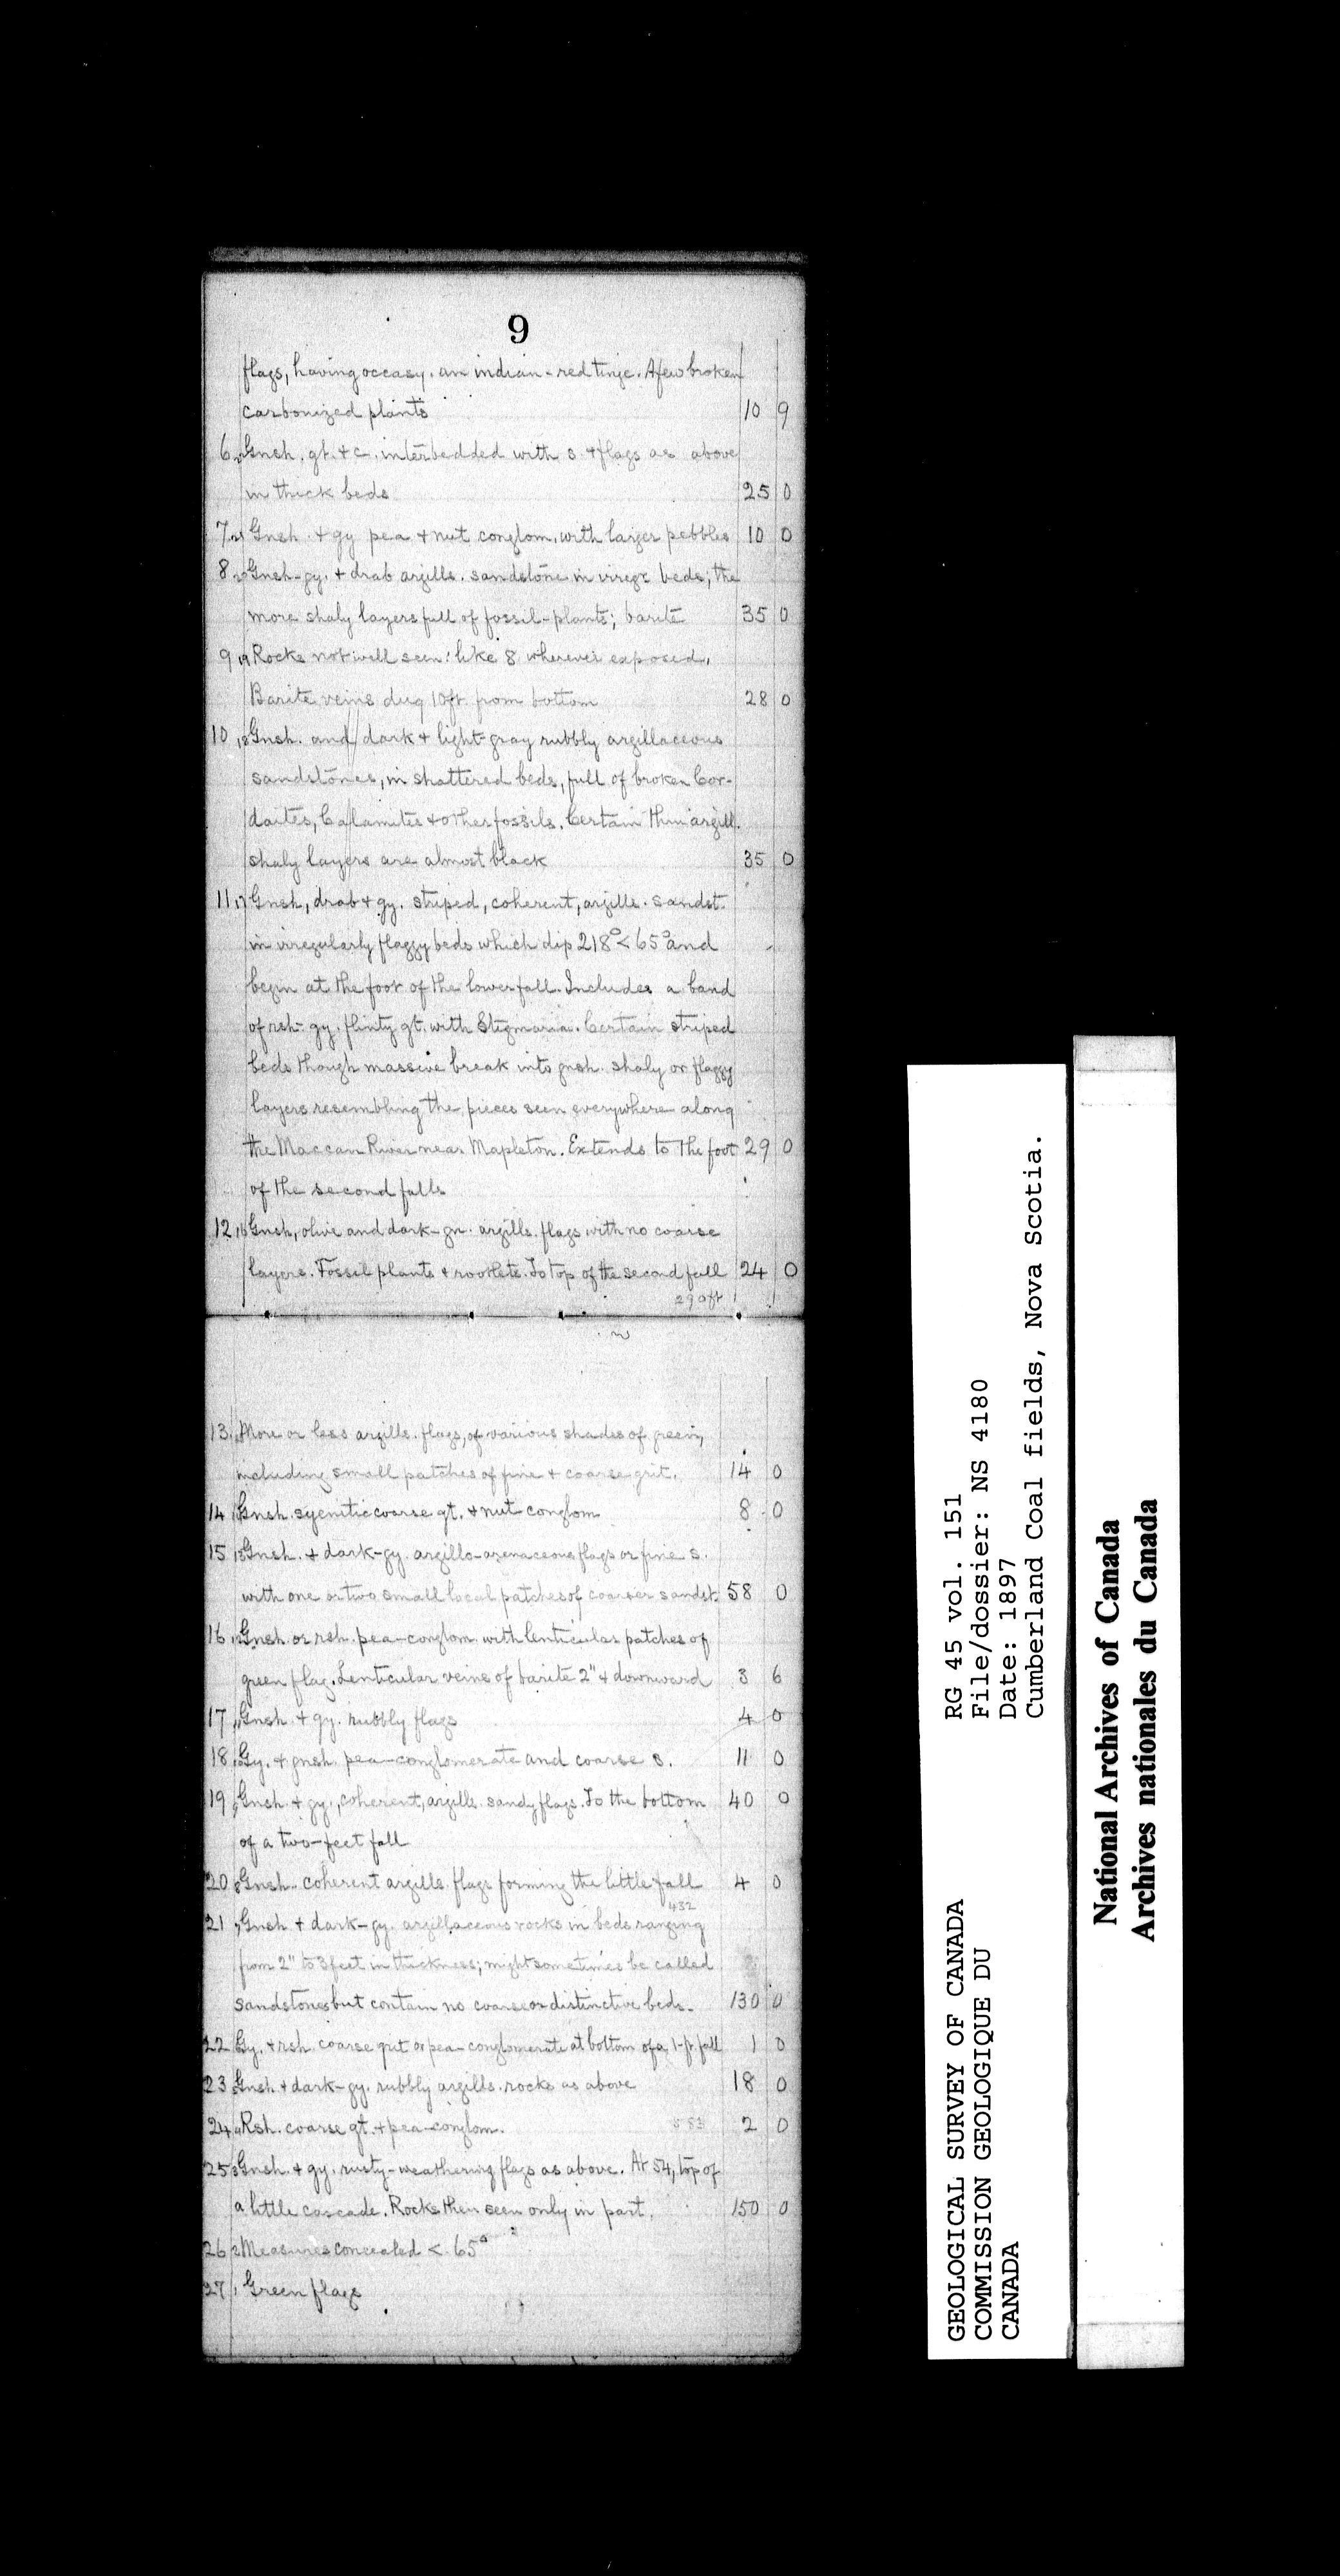 9
flags, having occasy. an indian-red tinge. A few broken
carbonized plants 10 9
6 Gnsh. gt. & c. interbedded with s. & flags as above
in thick beds 25 0
7 21 Gnsh. & gy pea & nut conglom. with larger pebbles 10 0
8 20 Gnsh-gy. & drab argills. sandstone in irregr beds; the
more shaly layers full of fossil-plants; barite 35 0
9 19 Rocks not well seen: like 8 wherever exposed.
Barite veins dug 10ft. from bottom 28 0
10 18 Gnsh. and dark & light-gray rubbly argillaceous
sandstones, in shattered beds, full of broken Cor-
daites, Calamites & other fossils. Certain thin argill.
shaly layers are almost black 35 0
11 17 Gnsh, drab & gy. striped, coherent, argills. sandst.
in irregularly flaggy beds which dip 218° < 65° and
begin at the foot of the lower fall. Includes a band
of rsh-gy. flinty gt. with Stigmaria. Certain striped
beds though massive break into gnsh. shaly or flaggy
layers resembling the pieces seen everywhere along
the Maccan River near Mapleton. Extends to the foot 29 0
of the second falls
12 16 Gnsh, olive and dark-gn. argills. flags with no coarse
layers. Fossil plants & rootlets. To top of the second fall 24 0
290ft
13 More or less argills. flags, of various shades of green,
including small patches of fine & coarse grit. 14 0
14 Gnsh. syenitic coarse gt. & nut-conglom 8 0
15 13 Gnsh. & dark-gy. argillo-arenaceous flags or fine s.
with one or two small local patches of coarser sandst. 58 0
16 12 Gnsh. or rsh. pea-conglom. with lenticular patches of
green flag. Lenticular veins of barite 2" & downward 3 6
17 11 Gnsh. & gy. rubbly flags 4 0
18 10 Gy. & gnsh. pea-conglomerate and coarse s. 11 0
19 9 Gnsh. & gy., coherent, argills. sandy flags. To the bottom 40 0
of a two-feet fall
20 8 Gnsh. coherent argills. flags forming the little fall 4 0
432
21 7 Gnsh. & dark-gy. argillaceous rocks in beds ranging
from 2" to 3 feet in thickness; might sometimes be called
sandstones but contain no coarse or distinctive beds. 130 0
22 6 Gy. & rsh. coarse grit or pea-conglomerate at bottom of a 1-ft. fall 1 0
23 5 Gnsh. & dark-gy. rubbly argills. rocks as above 18 0
24 4 Rsh. coarse gt. & pea-conglom. 583 2 0
25 3 Gnsh. & gy. rusty-weathering flags as above. At 54, top of
a little cascade. Rocks then seen only in part. 150 0
26 2 Measures concealed < 65°
27 1 Green flags
GEOLOGICAL SURVEY OF CANADA
COMMISSION GEOLOGIQUE DU
CANADA
RG 45 vol. 151
File/dossier: NS 4180
Date: 1897
Cumberland Coal fields, Nova Scotia.
National Archives of Canada
Archives nationales du Canada